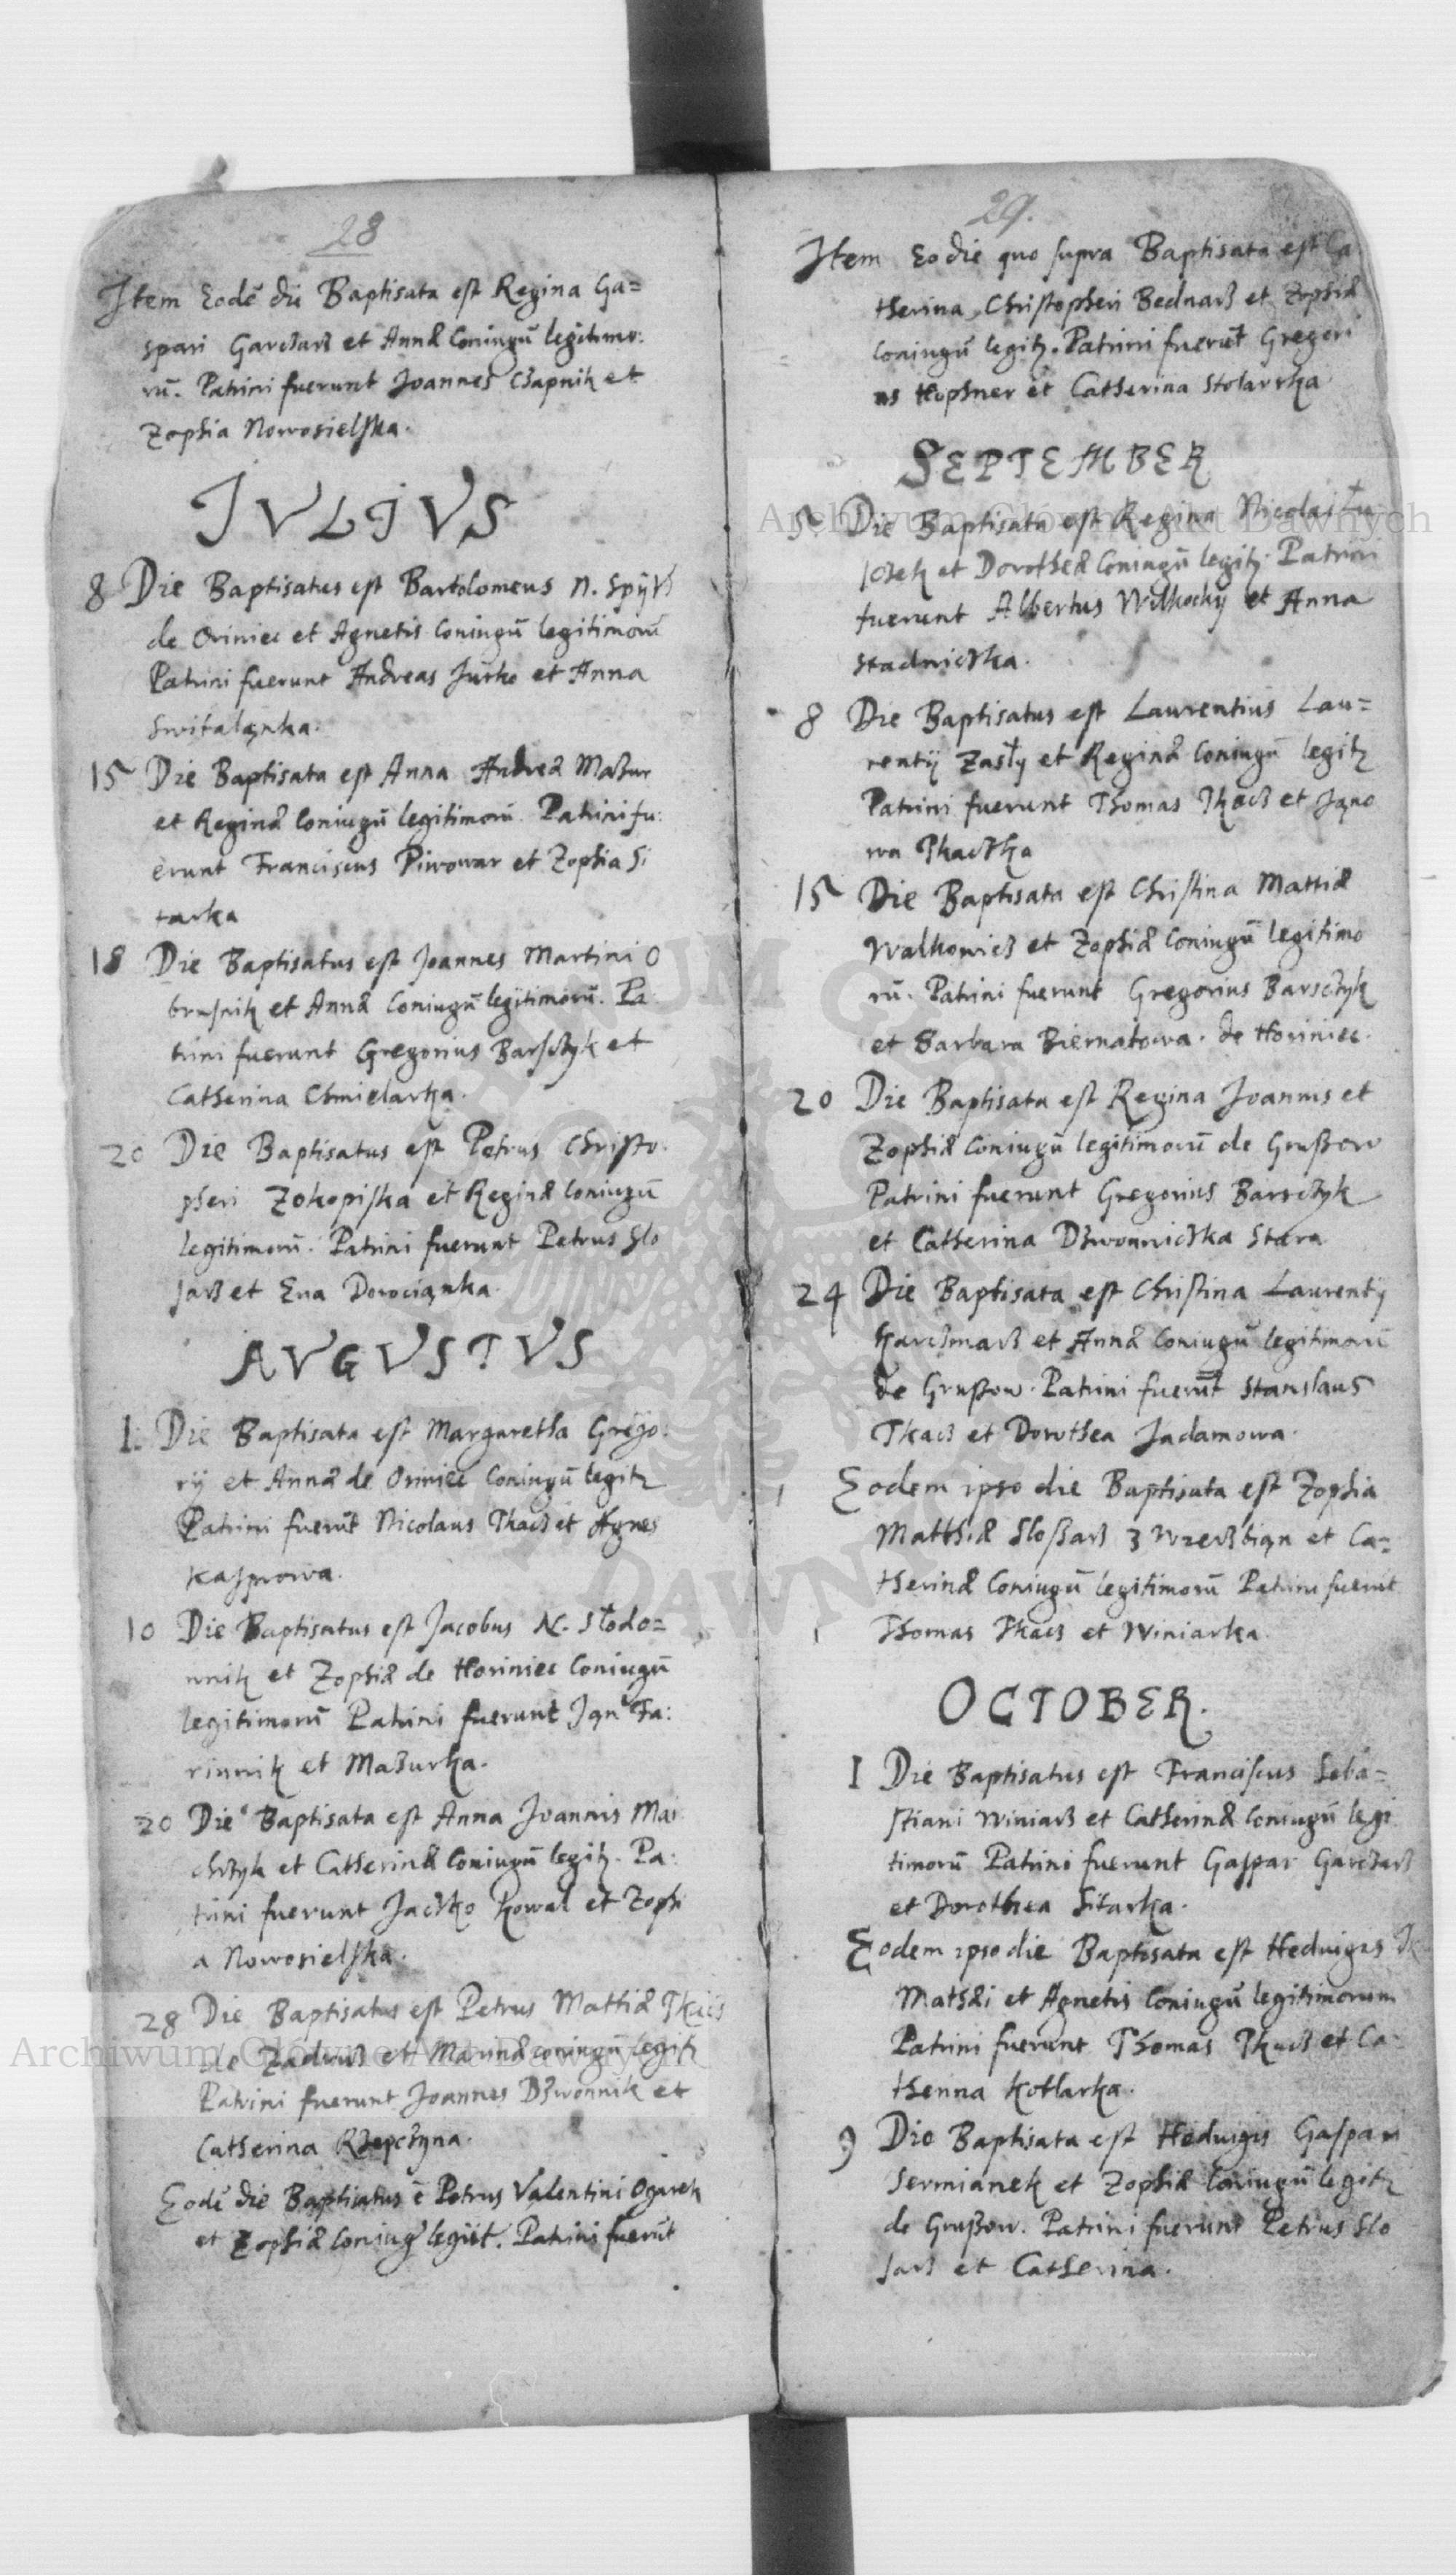 28
Item Eodē die Baptisata est Regina Ga=
spari Garczarz et Annæ Coniugū legitimo:
rū. Patrini fuerunt Joannes Czapnik et
Zophia Nowosielska.
JVLJVS
8 Die Baptisatus est Bartolomeus N.
de Oriniec et Agnetis Coniugū legitimorū
Patrini fuerunt Andreas Jurko et Anna
Switaląnka.
15 Die Baptisata est Anna Andreæ Mazur
et Reginæ Coniugū legitimorū. Patrini fu:
erunt Franciscus Piwowar et Zophia Si
tarka
18 Die Baptisatus est Joannes Martini O
brusnik et Annæ Coniugū legitimorū. Pa
trini fuerunt Gregorius Barsczyk et
Catherina Chmielarka.
20 Die Baptisatus est Petrus Christo.
pheri Zokopiska et Reginæ Coniugū
legitimorū. Patrini fuerunt Petrus Slo
sarz et Eua Dorociąnka.
AVGVSTVS
1. Die Baptisata est Margaretha Grego:
rij et Annæ de Oriniec Coniugū legitz
Patrini fuerūt Nicolaus Tkacz et Agnes
Kasprowa.
10 Die Baptisatus est Jacobus N. Słodo=
wnik et Zophiæ de Horiniec Coniugū
legitimorū Patrini fuerunt Fa:
rinnik et Mazurka.
20 Die Baptisata est Anna Joannis Mai
chrzyk et Catherinæ Coniugū legitz. Pa:
trini fuerunt Jaczko Kowal et Zophi
a Nowosielska.
28 Die Baptisatus est Petrus Mattiæ Tkacz
de et Marinæ coniugū legitz
Patrini fuerunt Joannes Dzwonnik et
Catherina Rzepczyna.
Eodē die Baptiatus ē Petrus Valentini Ogarek
et Zophiæ Coniug legiit. Patrini fuerūt
29.
Item Eo die quo supra Baptisata est Ca
therina Christopheri Bednarz et Zophiæ
Coniugū legitz. Patrini fuerūt Gregori
us Hophner et Catherina Stolarska
SEPTEMBER
5. Die Baptisata est Regina Nicolai Łu
kosek et Dorotheæ Coniugū legitz. Patrini
fuerunt Albertus et Anna
Stadniczka.
8 Die Baptisatus est Laurentius Lau=
rentij Zasły et Reginæ Coniugū legitz
Patrini fuerunt Thomas Tkacz et Jąno
wa Tkaczka
15 Die Baptisata est Christina Mattiæ
Walkowicz et Zophiæ Coniugū legitimo
rū. Patrini fuerunt Gregorius Barsczyk
et Barbara Biernatowa. de Horiniec.
20 Die Baptisata est Regina Joannis et
Zophiæ Coniugū legitimorū de Grußow
Patrini fuerunt Gregorius Barsczyk
et Catherina Dzwonniczka Stara
24 Die Baptisata est Christina Laurentij
Karczmarz et Annæ Coniugū legitimorū
de Grußow. Patrini fuerūt Stanslaus
Tkacz et Dorothea Jadamowa.
Eodem ipso die Baptisata est Zophia
Matthiæ Sloßarz z et Ca=
therinæ Coniugū legitimorū Patrini fuerūt
Thomas Tkacz et Winiarka.
OCTOBER.
1 Die Baptisatus est Franciscus Seba=
stiani Winiarz et Catherinæ Coniugū legi
timorū Patrini fuerunt Gaspar Garczarz
et Dorothea Sitarka.
Eodem ipso die Baptisata est Heduigis
Mathæi et Agnetis Coniugū legitimorum
Patrini fuerunt Thomas Tkacz et Ca
therina Kotlarka.
9 Die Baptisata est Heduigis Gaspari
Sermianek et Zophiæ Coniugū legitz
de Grußow. Patrini fuerunt Petrus Slo
sarz et Catherina.
Archiwum Główne Akt Dawnych
Archiwum Główne Akt Dawnych